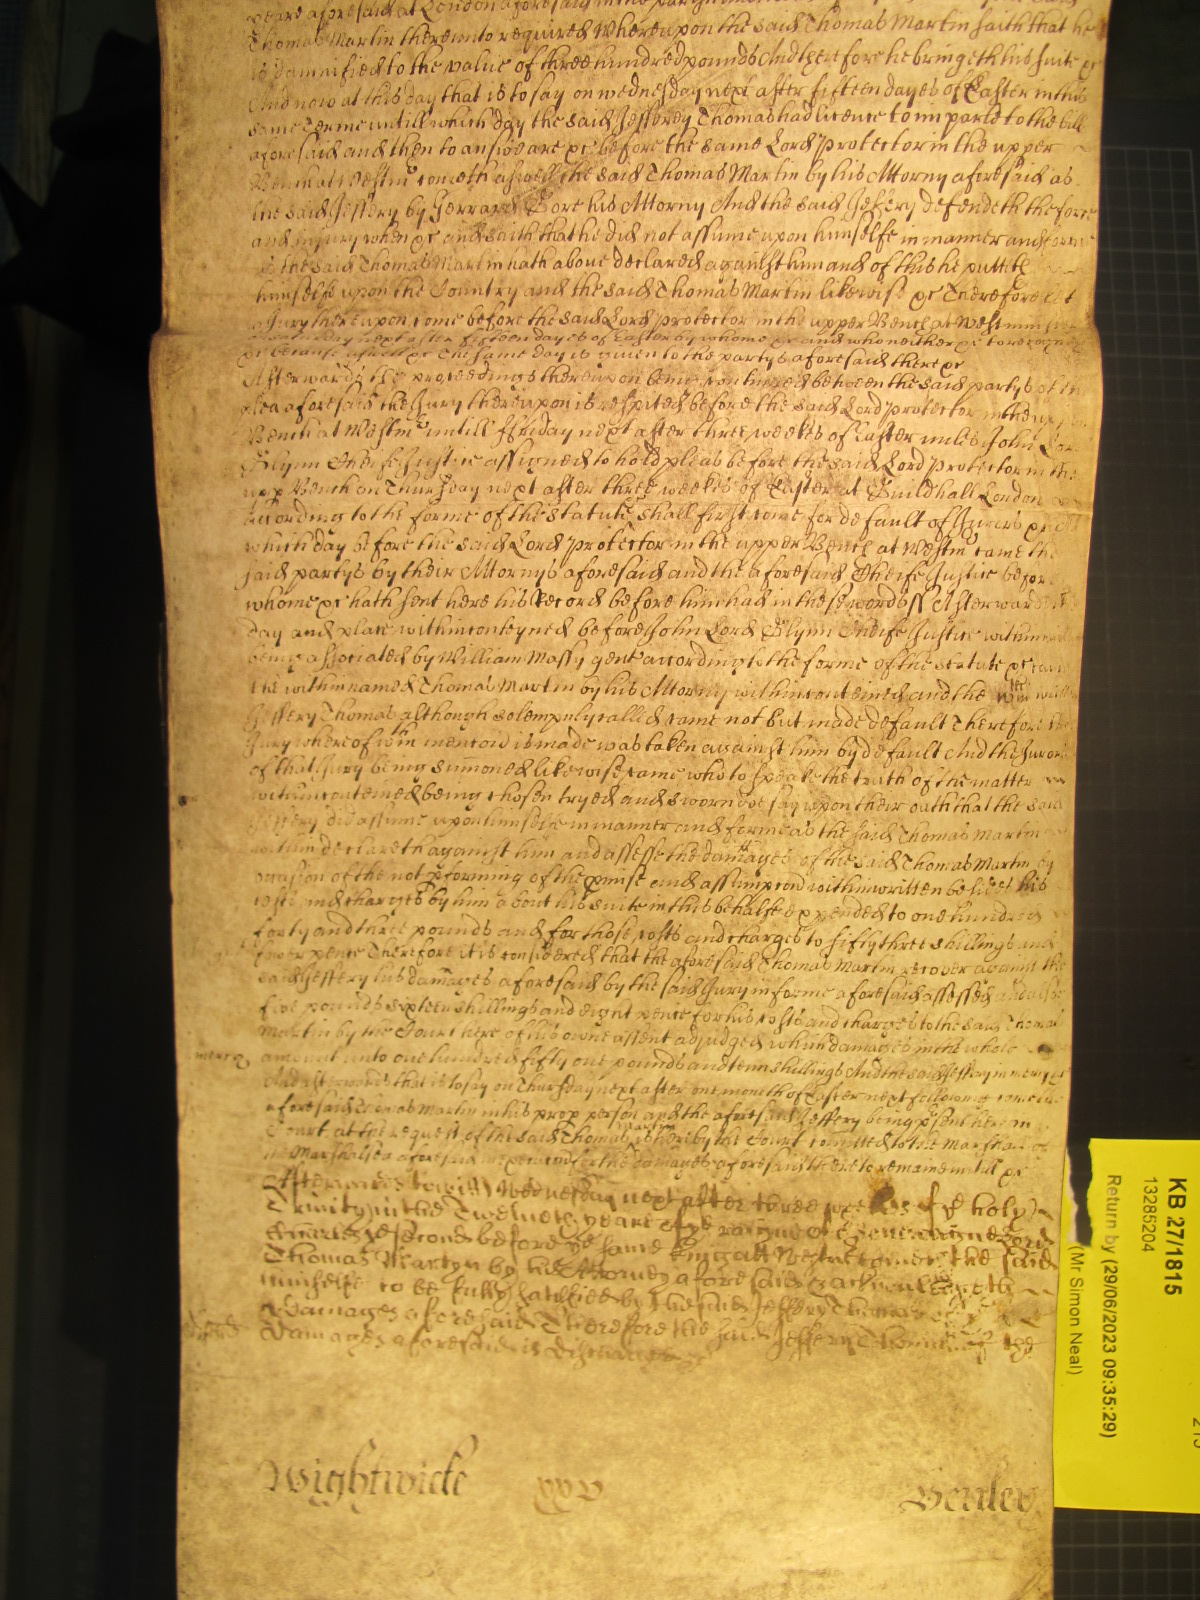 yeare aforesaid at London aforesaid in the parish
Thomas Martin thereunto required Whereupon the said Thomas Martin saith that he
is damnified to the value of three hundred pounds And therefore he bringeth his suite &c
And now at this day that is to say on wednesday next after fifteen dayes of Easter in this
same Terme untill which day the said Jefferey Thomas had licence to imparle to the bill
aforesaid and then to answeare &c before the same Lord protector in the upper
Bench at Westmr cometh aswell the said Thomas Martin by his Attorny aforesaid as
the said Jeffery by Gerrard Gore his Attorny And the said Jeffery defendeth the force
and injury when &c and saith that he did not assume upon himselfe in manner and forme
as the said Thomas Martin hath above declared against him and of this he putteth
himselfe upon the Country and the said Thomas Martin likewise &c Therefore let
a Jury thereupon come before the said Lord protector in the upper Bench at Westminster
on wednesday next after fifteen dayes of Easter by whome &c and who neither &c to recognize
&c because aswell &c The same day is given to the partys aforesaid there &c
Afterwards the proceedings thereupon being continued between the said partys of the
plea aforesaid the Jury thereupon is respited before the said Lord protector in the upper
Bench at Westmr untill ffriday next after three weekes of Easter unles John Lord
Glynn Cheife Justice assigned to hold pleas before the said Lord protector in the
upp Bench on Thursday next after three weekes of Easter at Guildhall London
according to the forme of the statute shall first come for default of Jurors &c At
which day before the said Lord protector in the upper Bench at Westmr came the
said partys by their Attornys aforesaid and the aforesaid Cheife Justice before
whome &c hath sent here his Record before him had in these words ss Afterwards the
day and place within conteyned before John Lord Glynn Cheife Justice within
being associated by William Massy gent according to the forme of the statute &c came
the within named Thomas Martin by his Attorny within conteined and the within
Jeffery Thomas although solempnly called came not but made default Therefore the
Jury whereof wthin mencon is made was taken against him by default And the Jurors
of that Jury being sumoned likewise came who to speake the truth of the matter
within conteined being chosen tryed and sworn doe say upon their oath that the said
Jeffery did assume upon himselfe in manner and forme as the said Thomas Martin
within declareth against him and assesse the damages of the said Thomas Martin by
occasion of the not pforming of the pmise and assumpcon within written besides his
costs and charges by him about his suite in this behalfe expended to one hundred
forty and three pounds and for those costs and charges to fifty three shillings and
fower pence Therefore it is considered that the aforesaid Thomas Martin recover against the
said Jeffery his damages aforesaid by the said Jury in forme aforesaid assessed and alsoe
five pounds sixteen shillings and eight pence for his costs and charges to the said Thomas
Martin by the Court here of his owne assent adjudged which damages in the whole
mercy amount unto one hundred fifty one pounds and tenn shillings And the said Jeffery in mercy &c
And afterwards that is to say on Thursday next after one month of Easter next following came the
aforesaid Thomas Martin in his prop person and the aforesaid Jeffery being psent here in
Court at the request of the said Thomas Martin is here by the Court comitted to the Marshall of
the Marshalsea aforesaid in execucon for the damages aforesaid there to remaine untill &c
Afterwards to witt Wednesday next after three weekes of ye holy
Trinity in the Twelueth yeare of ye raigne of
Charles ye second before ye same King att Westmr comes the said
Thomas Martyn by his Attorney aforesaid & acknowledgeth
himselfe to be fully satisfied by the said Jeffery Thomas
Damages aforesaid Therefore the said Jeffery Thomas of the
Damages aforesaid is discharged &c
Wightwicke xxv
KB 27/1815
13285204
Return by (29/06/2023 09:35:29)
(Mr Simon Neal)